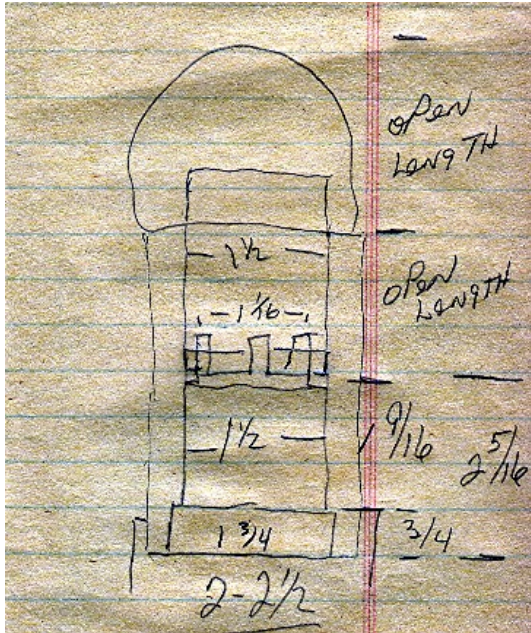 oPen
LengTH
1 1/2
oPen
LengTH
1 1/16
1 1/2
1 9/16
2 5/16
1 3/4
3/4
2-2 1/2